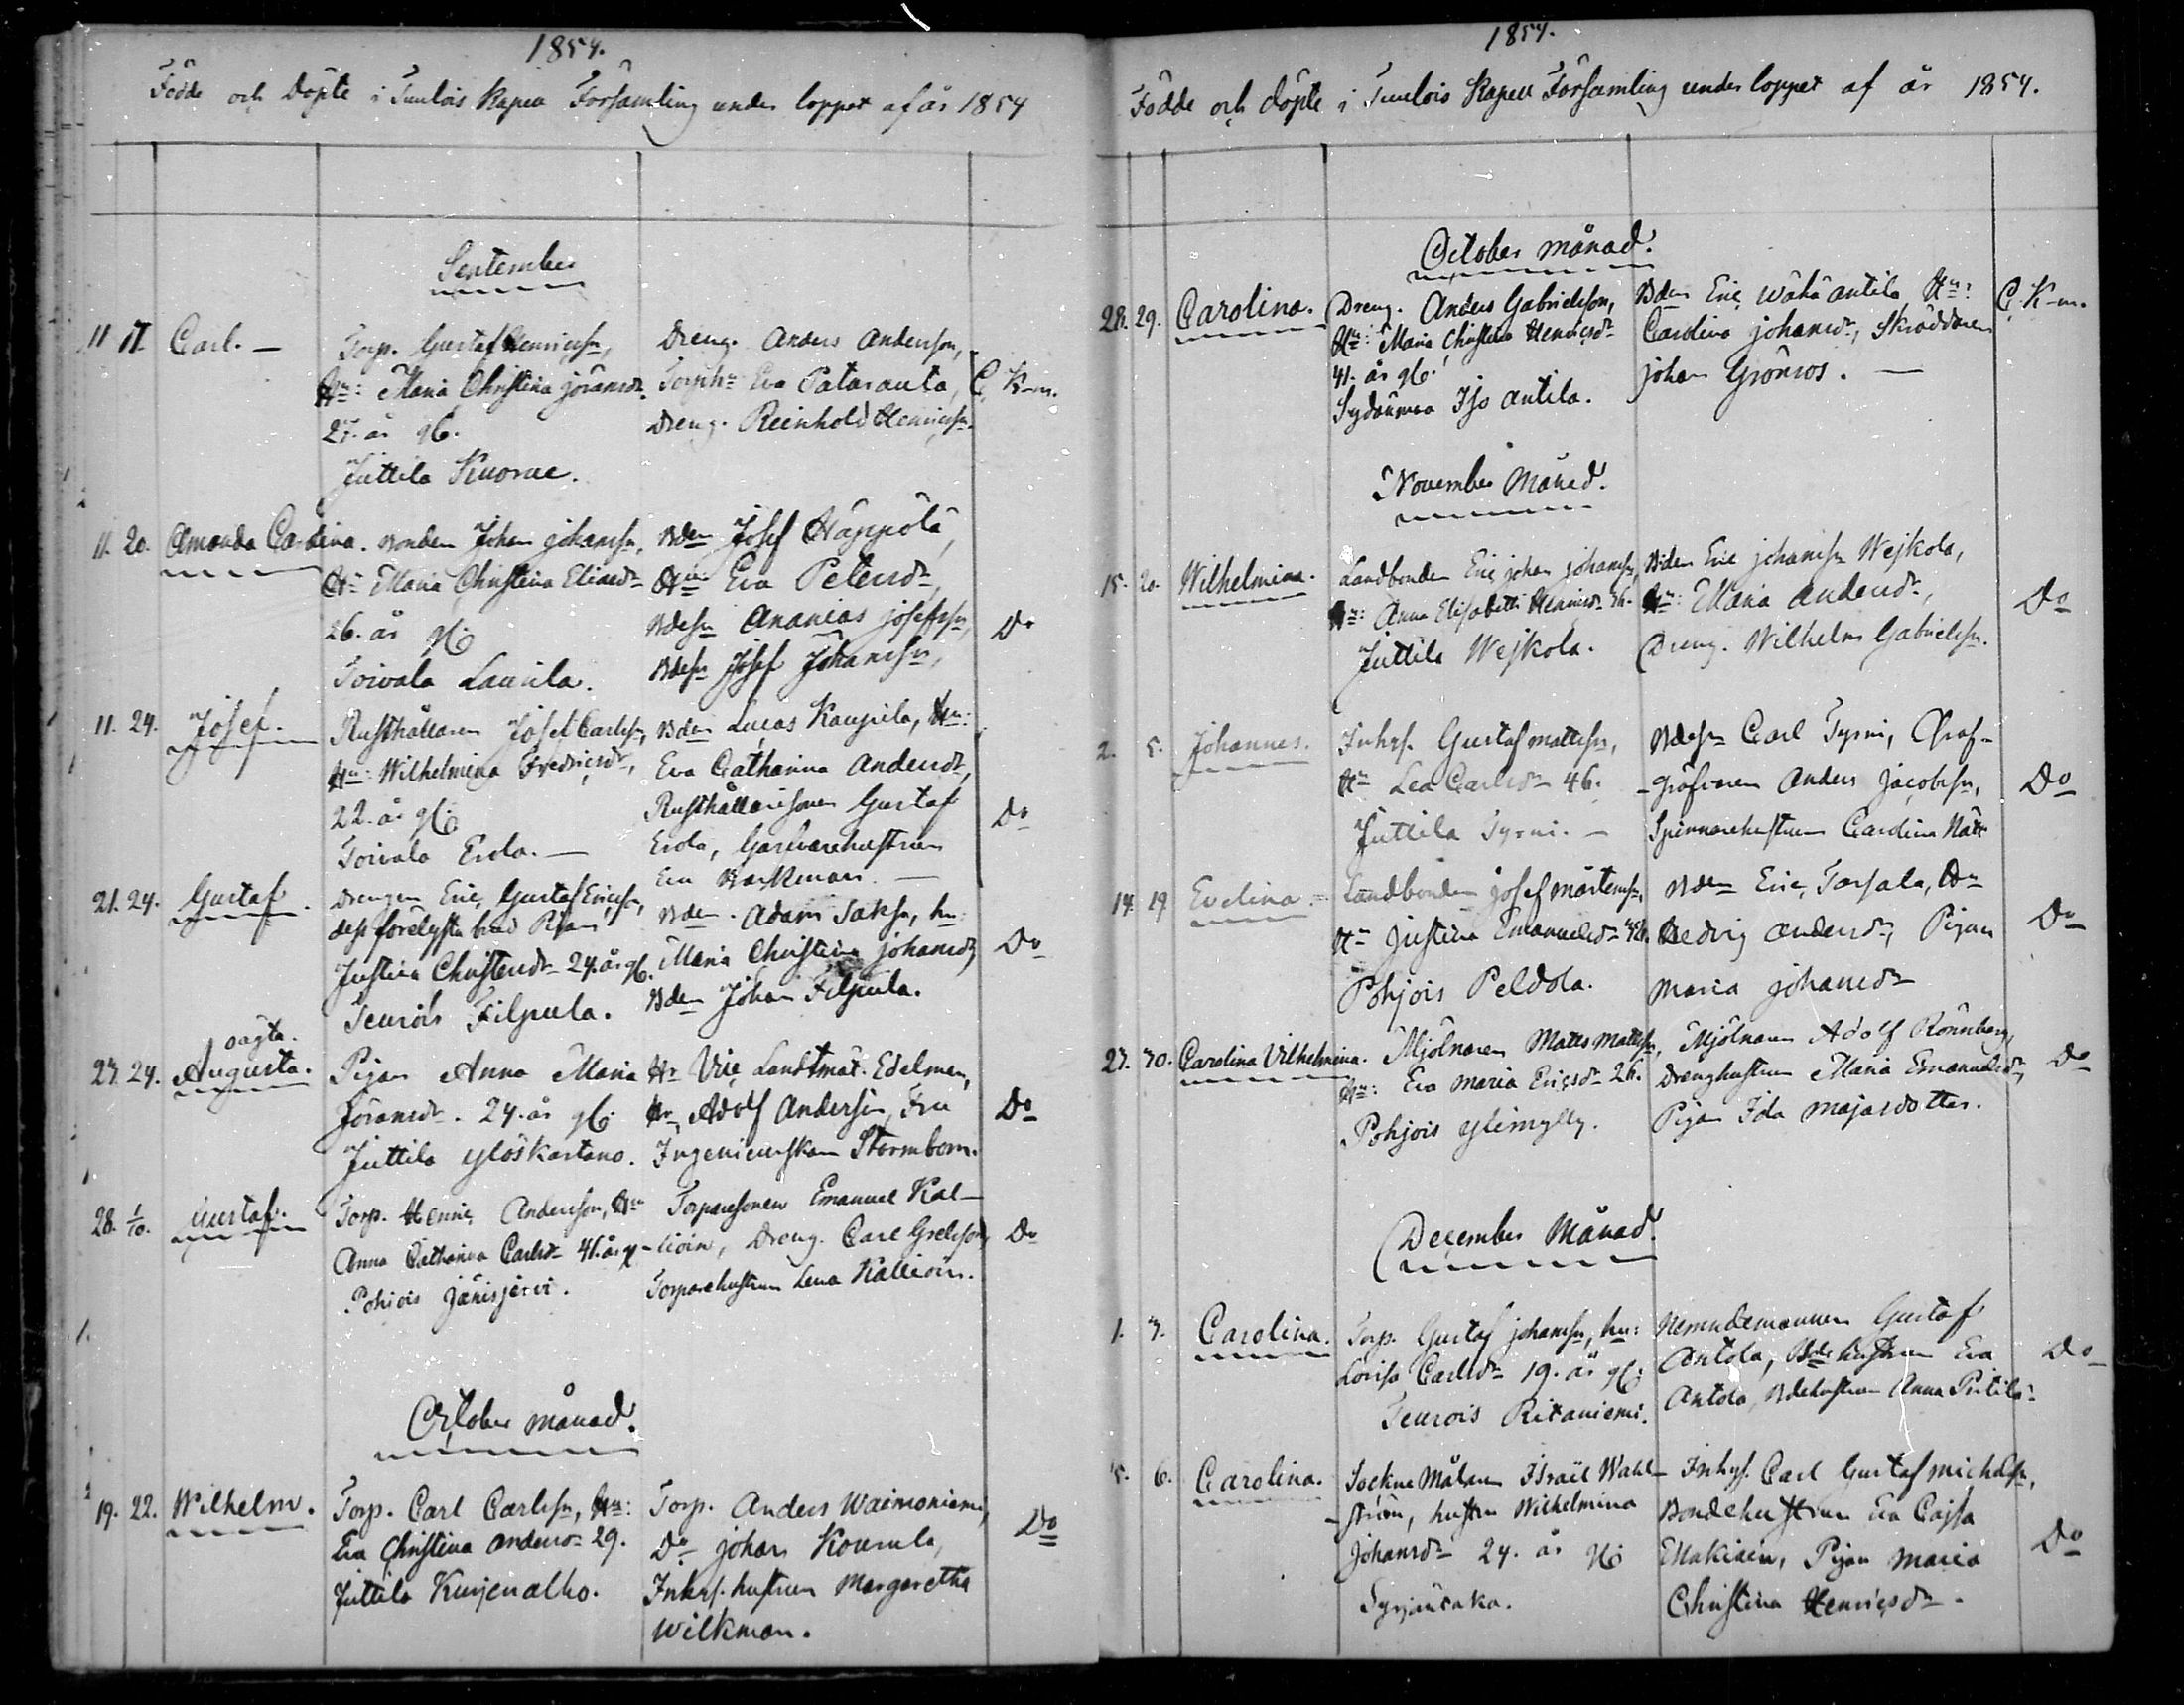 1854.
Födde och Döpte i Tuulois Kapell Församling under loppet af år 1854
September
11 17 Carl. —
Torp. Gustaf Henricsson,
Hu: Maria Christina Göransdr
27. år gl.
Juttila Kuorne.
Dreng. Anders Anderson,
Torphu Eva Pataranta,
Dreng. Reinhold Henricsson.
C. K-m.
11. 20. Amanda Carolina.
Bonden Johan Johansson,
Hu Maria Christina Eliaedr
26. år gl.
Toivola Laurila.
Bden Josef Häppölä,
Hu Eva Petersdr,
Bdesn Ananias Josefsson,
Bdesn Josef Johansson,
Do
11. 24. Josef.
Rusthållaren Josef Carlsson,
Hu: Wilhelmina Fredricsdr,
22. år gl.
Toivola Erola. —
Bden Lucas Kaupila, Hu:
Eva Catharina Andersdr,
Rusthållaresonen Gustaf
Erola, Garfvarehustrun
Eva Backman. —
Do
21. 24. Gustaf.
Drengen Eric Gustaf Ericsson,
dess förelysta brud Pigan
Justina Christersdr 24. år gl.
Teurois Filpula.
Bden. Adam Saksa, hu:
Maria Christina Johansdr,
Bden Johan Filpula.
Do
oägta.
23. 24. Augusta.
Pigan Anna Maria
Göransdr. 24. år gl.
Juttila Ylöskartano.
Hr Vice Landtmät. Edelman,
Hr Adolf Andersin, Fru
Ingenieurskan Stormbom.
Do
28. 1/10. Gustaf.
Torp. Henric Andersson, Hu
Anna Catharina Carlsdr 41. år gl
Pohjois Jänisjärvi.
Torparesonen Emanuel Kal-
lioin, Dreng. Carl Grelsson,
Torparehustrun Lena Kallioin.
Do
October månad.
19. 22. Wilhelm.
Torp. Carl Carlsson, Hu:
Eva Christina Andersdr 29.
Juttila Kurjenalho.
Torp. Anders Waimoniemi,
Do Johan Koumla,
Inhys. hustrun Margaretha
Wilkman.
Do
1854.
Födde och döpte i Tuulois Kapell Församling under loppet af år 1854.
October månad.
28. 29. Carolina.
Dreng. Anders Gabrielsson,
Hu: Maria Christina Henricsdr
41. år gl.
Sydänmaa Iso Antila.
Bden Eric Wähä Antila, Hu:
Carolina Johansdr, Skräddaren
Johan Grönroos. —
C. K-m.
November Månad.
15. 20. Wilhelmina.
Landbonden Eric Johan Johansson,
Hu: Anna Elisabeth Henricsdr 36.
Juttila Wejkola.
Bden Eric Johansson Wejkola,
Hu: Maria Andersdr,
Dreng. Wilhelm Gabrielsson.
Do
2. 5. Johannes.
Inhys. Gustaf Mattsson,
Hu Lea Carlsdr 46.
Juttila Tyrni. —
Bdesn Carl Tyrni, Graf-
-gräfvaren Anders Jacobsson,
Spinnarehustrun Carolina Nätt
Do
14. 19 Evelina.
Landbonden Josef Mårtensson,
Hu Justina Emanuelsdr 42.
Pohjois Peldola.
Bden Eric Torsala, Hu
Hedvig Andersdr, Pigan
Maria Johansdr
Do
27. 30. Carolina Vilhelmina.
Mjölnaren Matts Mattsson,
Hu: Eva Maria Ericsdr 26.
Pohjois Ylimylly.
Mjölnaren Adolf Rönnberg,
Drenghustrun Maria Emanuelsdr,
Pigan Ida Majasdotter.
Do
December Månad.
1. 3. Carolina.
Torp. Gustaf Johansson, hu:
Lovisa Carlsdr 19. år gl.
Teurois Ritaniemi.
Nemndemannen Gustaf
Antola, Bdehustrun Eva
Antola, Bdehustrun Anna Pertilä
Do
5. 6. Carolina.
Sockne Målaren Israël Wahl-
-ström, hustru Wilhelmina
Johansdr 24. år gl.
Syrjäntaka.
Inhys. Carl Gustaf Michelsson,
Bondehustrun Eva Cajsa
Makiain, Pigan Maria
Christina Henricsdr.
Do